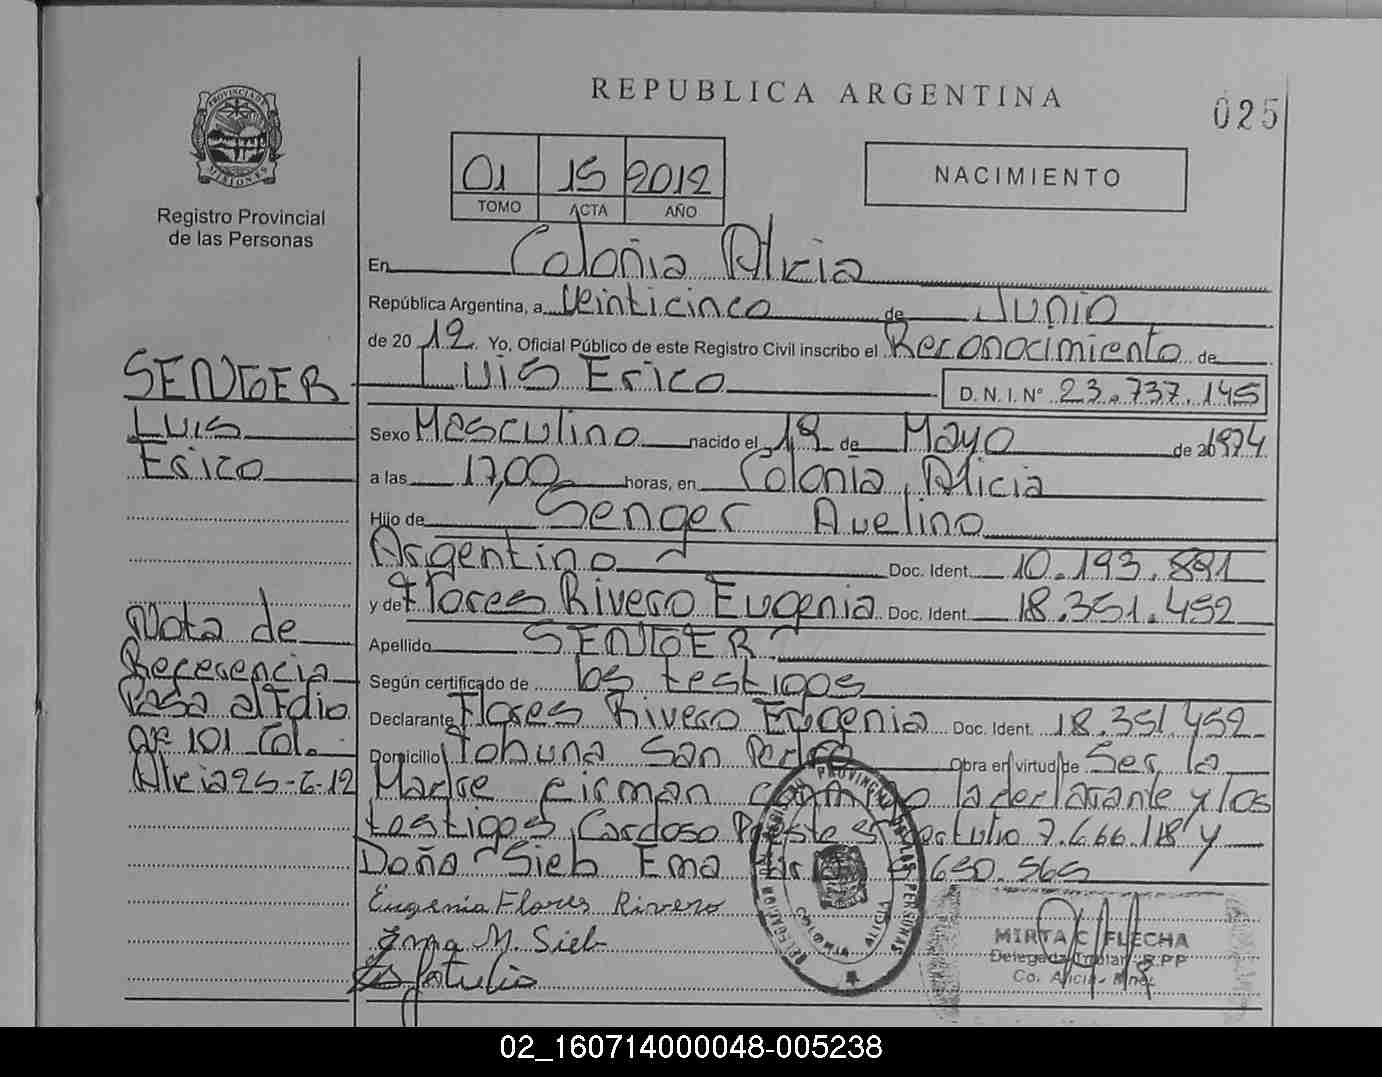 REPUBLICA ARGENTINA
025
PROVINCIA DE
MISIONES
Registro Provincial
de las Personas
01 15 2012
TOMO ACTA AÑO
NACIMIENTO
En Coloñia Alicia
República Argentina, a veinticinco de Junio
de 20 12. Yo, Oficial Público de este Registro Civil inscribo el Reconocimiento de
Luis Erico D.N.I.Nº 23.737.145
Sexo Masculino nacido el 19 de Mayo de 1974
a las 17,00 horas, en Colonia, Alicia
Hijo de Senger Avelino
Argentino Doc. Ident. 10.193.891
y de Flores Rivero Eugenia Doc. Ident. 18.351.452
Apellido SENGER
Según certificado de los testigos
Declarante Flores Rivero Eugenia Doc. Ident. 18.351.452
Domicilio Tobuna San Pedro Obra en virtud de Ser la
Madre firman conmigo la declarante y los
testigos, Cardoso 7.666.118 y
Doña Sieb Ema 650.565
Eugenia Flores Rivero
Ema M. Sieb
SENGER
Luis
Erico
Nota de
Referencia
Pasa al Folio
Nº 101 Col.
Alicia 25-6-12
COLONIA ALICIA
MIRTA C. FLECHA
Delegada Titular R.P.P
Co. Alicia - Mnes.
02_160714000048-005238